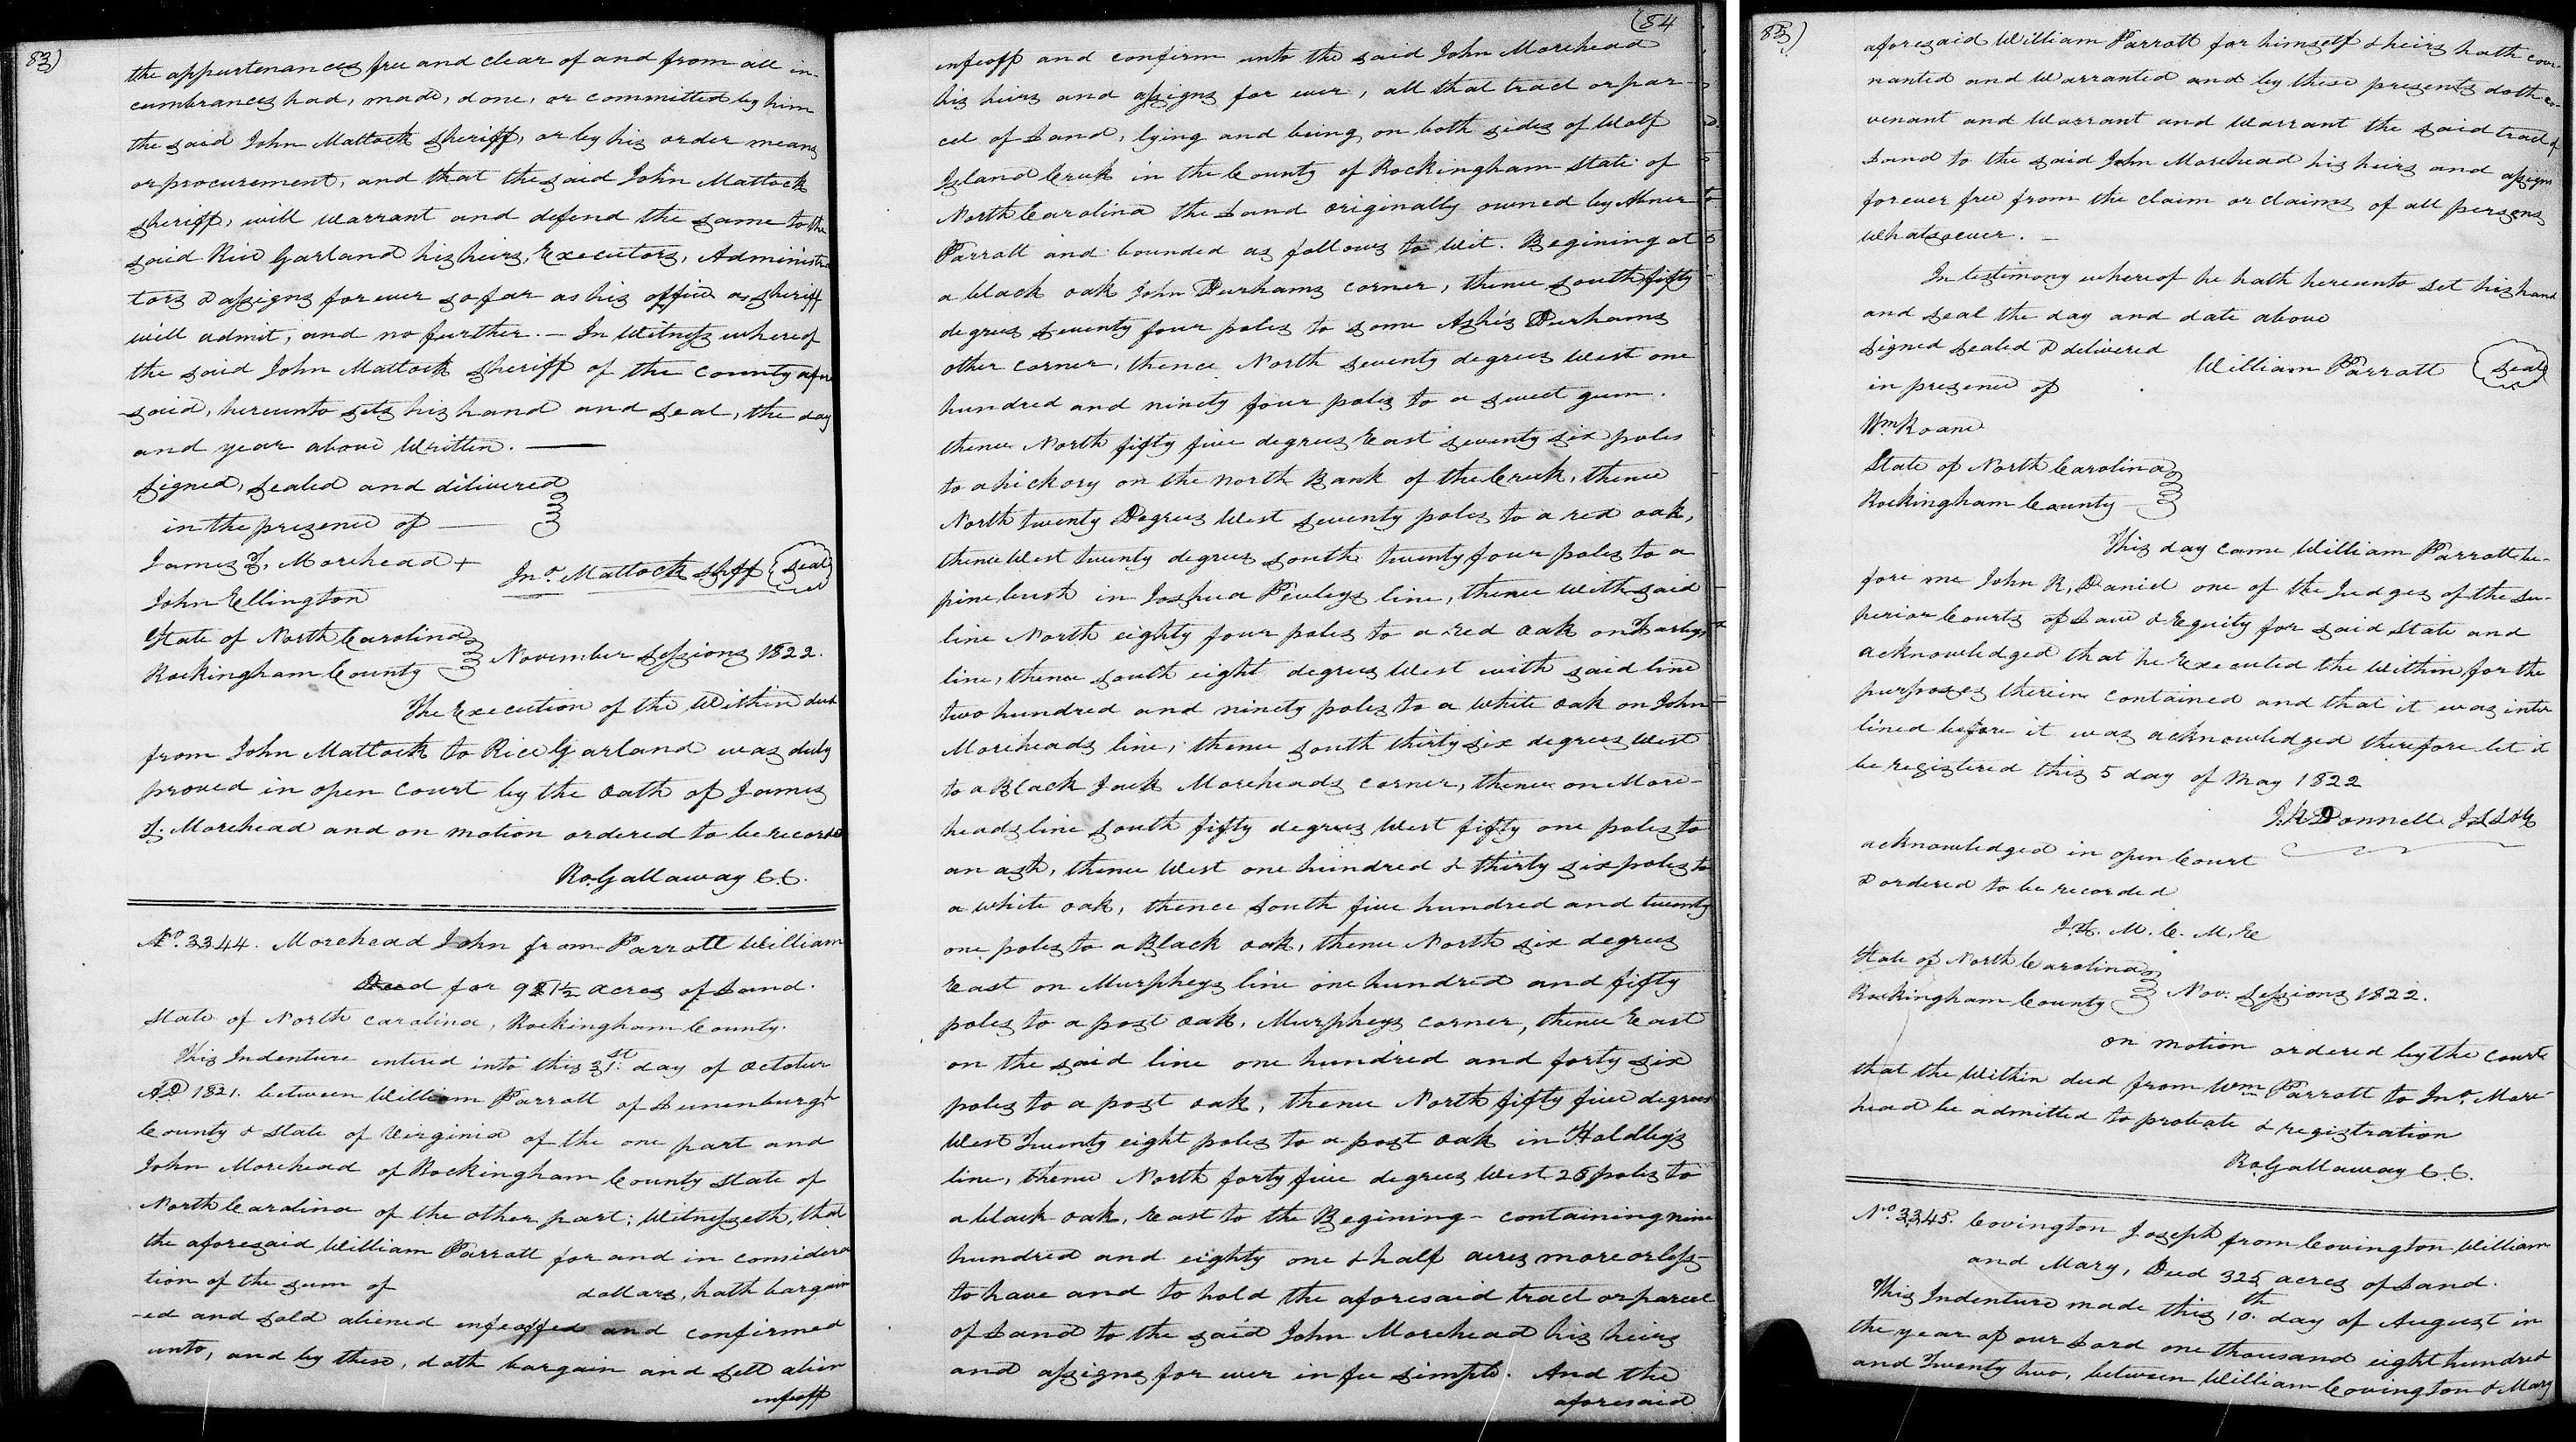 83)
the appurtenances free and clear of and from all in-
cumbrances had, made, done, or committed by him
the said John Mattock Sheriff, or by his order means
or procurement, and that the said John Mattock
sheriff, will warrant and defend the same to the
said Rice Garland his heirs, Executors, Administra
tors & assigns forever so far as his office as sheriff
will admit, and no further. — In Witness whereof
the said John Mattock Sheriff of the county afore
said, hereunto sets his hand and seal, the day
and year above Written. —
Signed, sealed and delivered
in the presence of —
James T. Morehead +
Jno. Mattock Shff Seal
John Ellington
State of North Carolina
Rockingham County
November Sessions 1822.
The Execution of the Within deed
from John Mattock to Rice Garland was duly
proved in open Court by the Oath of James
T. Morehead and on motion ordered to be recorded
Ro. Gallaway C.C.
No. 3344. Morehead John from Parrott William
Deed for 981½ acres of Land.
State of North Carolina, Rockingham County.
This Indenture entered into this 31st. day of October
AD 1821. between William Parrott of Lunenburgh
County & State of Virginia of the one part and
John Morehead of Rockingham County State of
North Carolina of the other part; Witnesseth, that
the aforesaid William Parrott for and in considera
tion of the sum of dollars, hath bargain
-ed and sold aliened enfeoffed and confirmed
unto, and by these, doth bargain and sell alien
enfeoff
(84
enfeoff and confirm unto the said John Morehead
his heirs and assigns for ever, all that tract or par-
cel of Land, lying and being on both sides of Wolf
Island Creek in the County of Rockingham State of
North Carolina the Land originally owned by Abner
Parrott and bounded as follows to Wit. Begining at
a black oak John Durhams corner, thence South fifty
degrees seventy four poles to some Ashes Durhams
other corner, thence North seventy degrees West one
hundred and ninety four poles to a sweet gum.
thence North fifty five degrees East seventy six poles
to a hickory on the north Bank of the Creek, thence
North twenty Degrees West seventy poles to a red oak,
thence West twenty degrees south twenty four poles to a
pine bush in Joshua line, thence with said
line North eighty four poles to a red oak on
line, thence south eight degrees West with said line
two hundred and ninety poles to a white oak on John
Moreheads line, thence south thirty six degrees West
to a Black Jack Moreheads corner, thence on More-
heads line south fifty degrees West fifty one poles to
an ash, thence West one hundred & thirty six poles to
a white oak, thence South five hundred and twenty
one poles to a Black oak, thence North six degrees
East on Murpheys line one hundred and fifty
poles to a post oak, Murpheys corner, thence East
on the said line one hundred and forty six
poles to a post oak, thence North fifty five degrees
West Twenty eight poles to a post oak in
line, thence North forty five degrees West 28 poles to
a black oak, East to the Begining - containing nine
hundred and eighty one & half acres more or less
to have and to hold the aforesaid tract or parcel
of Land to the said John Morehead his heirs
and assigns for ever in fee simple. And the
aforesaid
85)
aforesaid William Parrott for himself & heirs hath cove-
nanted and Warranted and by these presents doth co-
venant and Warrant and Warrant the said tract of
Land to the said John Morehead his heirs and assigns
forever free from the claim or claims of all persons
whatsoever. —
In testimony whereof he hath hereunto set his hand
and seal the day and date above
Signed sealed & delivered
William Parrott Seal
in presence of
Wm Roane
State of North Carolina
Rockingham County
This day came William Parrott be-
fore me John R, Daniel one of the Judges of the Su-
perior Courts of Law & Equity for said State and
acknowledged that he Executed the Within for the
purposes therein contained and that it was inter
lined before it was acknowledged therefore let it
be registered this 5 day of May 1822
J.R. Donnell
acknowledged in open Court
& ordered to be recorded
State of North Carolina
Rockingham County
Nov. Sessions 1822.
on motion ordered by the Court
that the Within deed from Wm Parrott to Jno. More-
head be admitted to probate & registration
Ro. Gallaway C.C.
No. 3345. Covington Joseph from Covington William
and Mary, Deed 325 acres of Land.
This Indenture made this 10th. day of August in
the year of our Lord one thousand eight hundred
and Twenty two, between William Covington & Mary